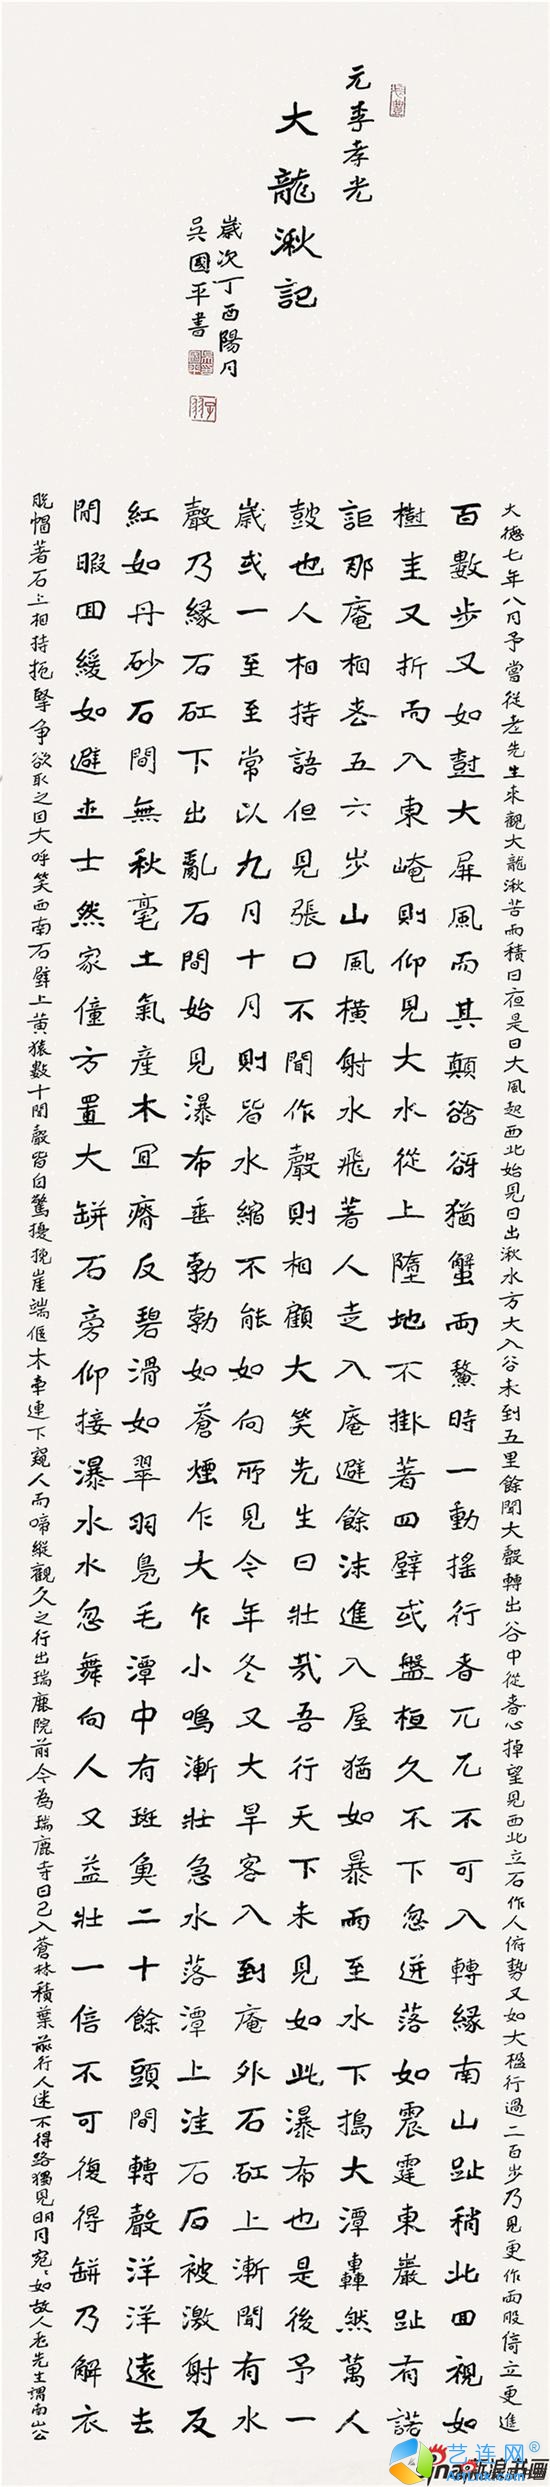 元李孝光
大龍湫記
歲次丁酉陽月
吳國平書
大德七年八月予嘗從老先生來觀大龍湫苦雨積日夜是日大風起西北始見日出湫水方大入谷未到五里餘聞大聲轉出谷中從者心掉望見西北立石作人俯勢又如大楹行過二百步乃見更作兩股倚立更進
百數步又如尌大屏風而其顛谽谺猶蟹兩螯時一動搖行者兀兀不可入轉緣南山趾稍北回視如
樹圭又折而入東崦則仰見大水從上墮地不掛著四壁或盤桓久不下忽迸落如震霆東巖趾有諾
詎那庵相去五六步山風橫射水飛著人走入庵避餘沫進入屋猶如暴雨至水下搗大潭轟然萬人
鼓也人相持語但見張口不聞作聲則相顧大笑先生曰壯哉吾行天下未見如此瀑布也是後予一
歲或一至至常以九月十月則皆水縮不能如向所見今年冬又大旱客入到庵外石矼上漸聞有水
聲乃緣石矼下出亂石間始見瀑布垂勃勃如蒼煙乍大乍小鳴漸壯急水落潭上洼石石被激射反
紅如丹砂石間無秋毫土氣產木宜瘠反碧滑如翠羽鳧毛潭中有斑魚二十餘頭聞轉聲洋洋遠去
閑暇回緩如避世士然家僮方置大缾石旁仰接瀑水水忽舞向人又益壯一倍不可復得缾乃解衣
脫帽著石上相持扼掔爭欲取之因大呼笑西南石壁上黃猿數十聞聲皆自驚擾挽崖端偃木牽連下窺人而啼縱觀久之行出瑞鹿院前今為瑞鹿寺日已入蒼林積葉前行人迷不得路獨見明月宛宛如故人老先生謂南山公
艺连网®